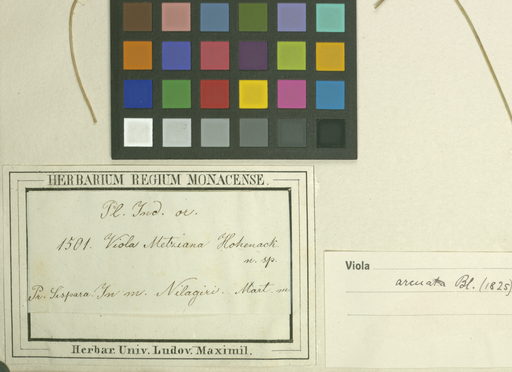 HERBARIUM REGIUM MONACENSE.
Pl. Ind. or.
1501. Viola Metziana Hohenack.
n. sp.
Pr. Sispara. In m. Nilagiri. Mart. m
Herbar. Univ. Ludov. Maximil.
Viola
arcuata Bl. (1825)